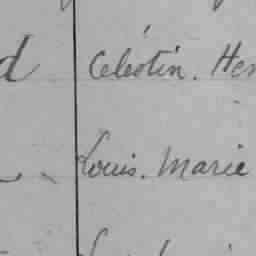 d Célestin. Hen
Louis. Marie